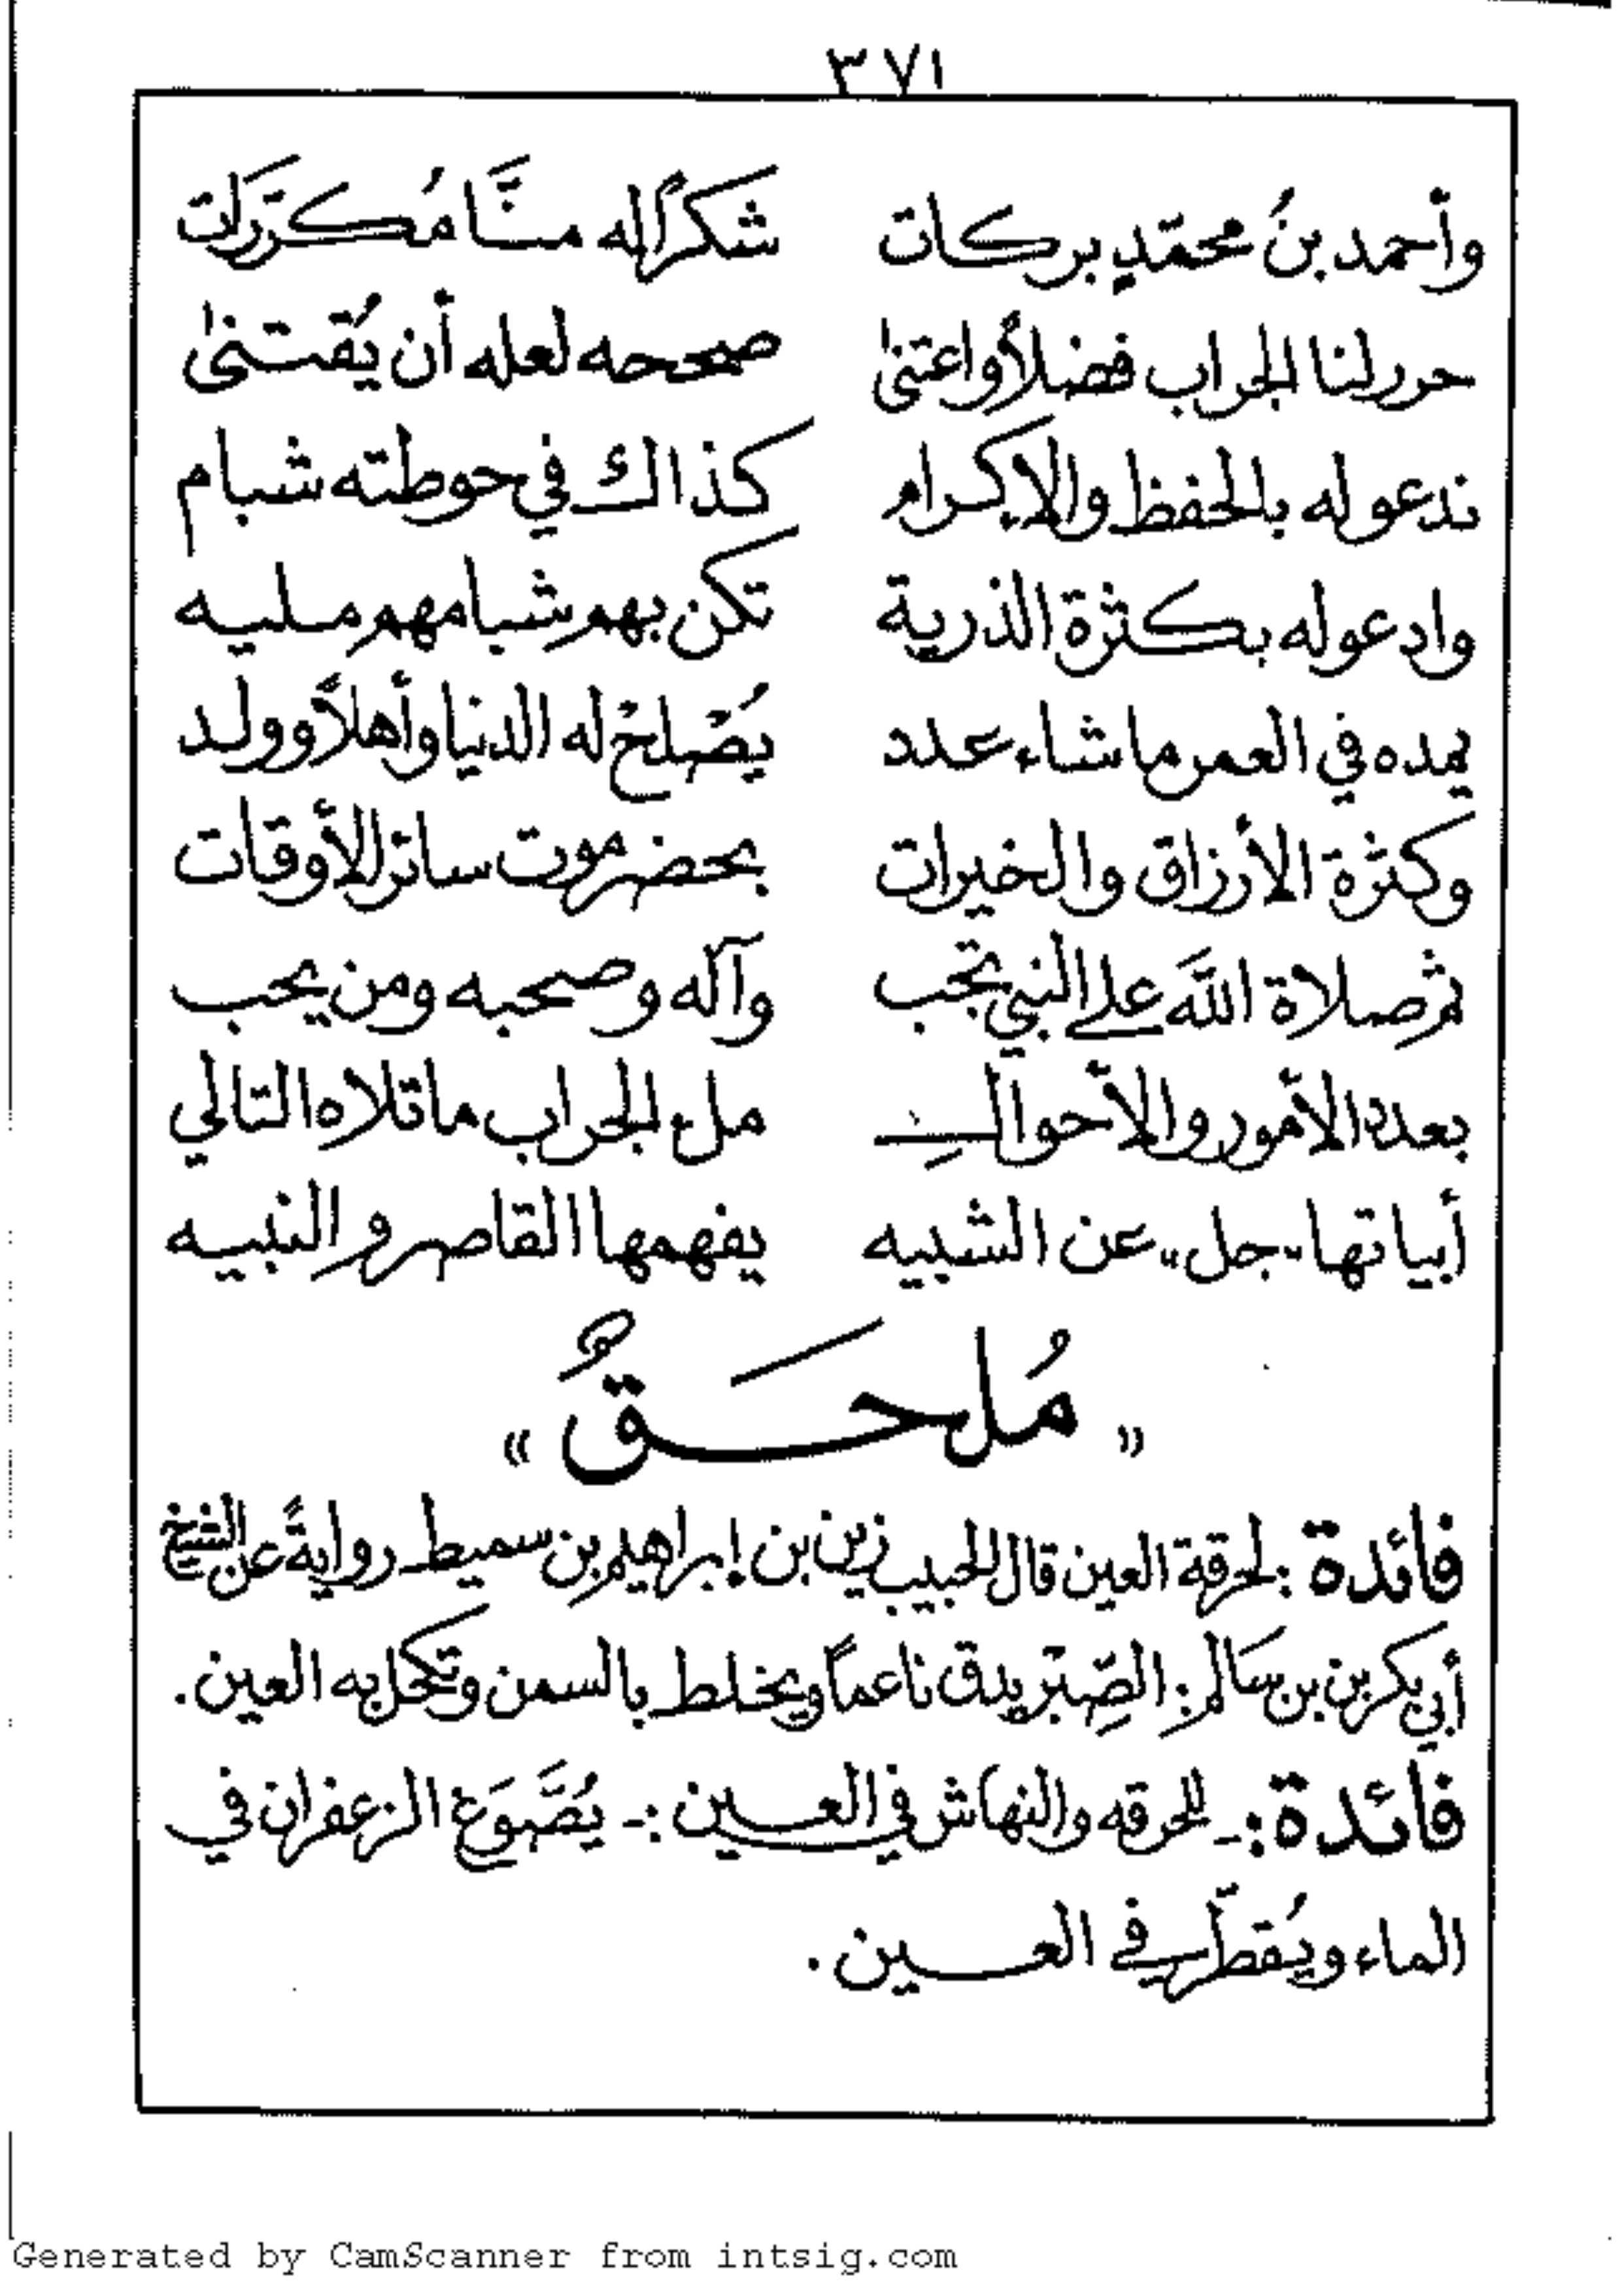 ٣٧١
وأحمد بنُ محمّدٍ بركات شكرًا له منَّا مُكرَّرَات
حرر لنا الجراب فضلاً واعتنىٰ صححه لعله أن يُقتنىٰ
ندعو له بالحفظ والإكرام كذاك في حوطته شبام
وادعو له بكثرة الذرية تكن بهم شبامهم مليه
يمده في العمر ما شاء عدد يُصْلحْ له الدنيا وأهلاً وولد
وكثرة الأرزاق والخيرات بحضرموت سائر الأوقات
ثم صلاة اللَّه على النبي تجب وآله وصحبه ومن يحب
بعدد الأمور والأحوالِ ملء الجراب ما تلاه التالي
أبياتها "جل" عن الشبيه يفهمها القاصر والنبيه
« مُلحَقٌ »
فائدة : لحرقة العين قال الحبيب زين بن إبراهيم بن سميط روايةً عن الشيخ
أبي بكر بن بن سَالم : الصِبْر يدق ناعماً ويخلط بالسمن وتكحل به العين .
فائدة :- للحرقه والنهاش في العين :- يُصَّوَع الزعفران في
الماء ويُقطّر في العين .
Generated by CamScanner from intsig.com